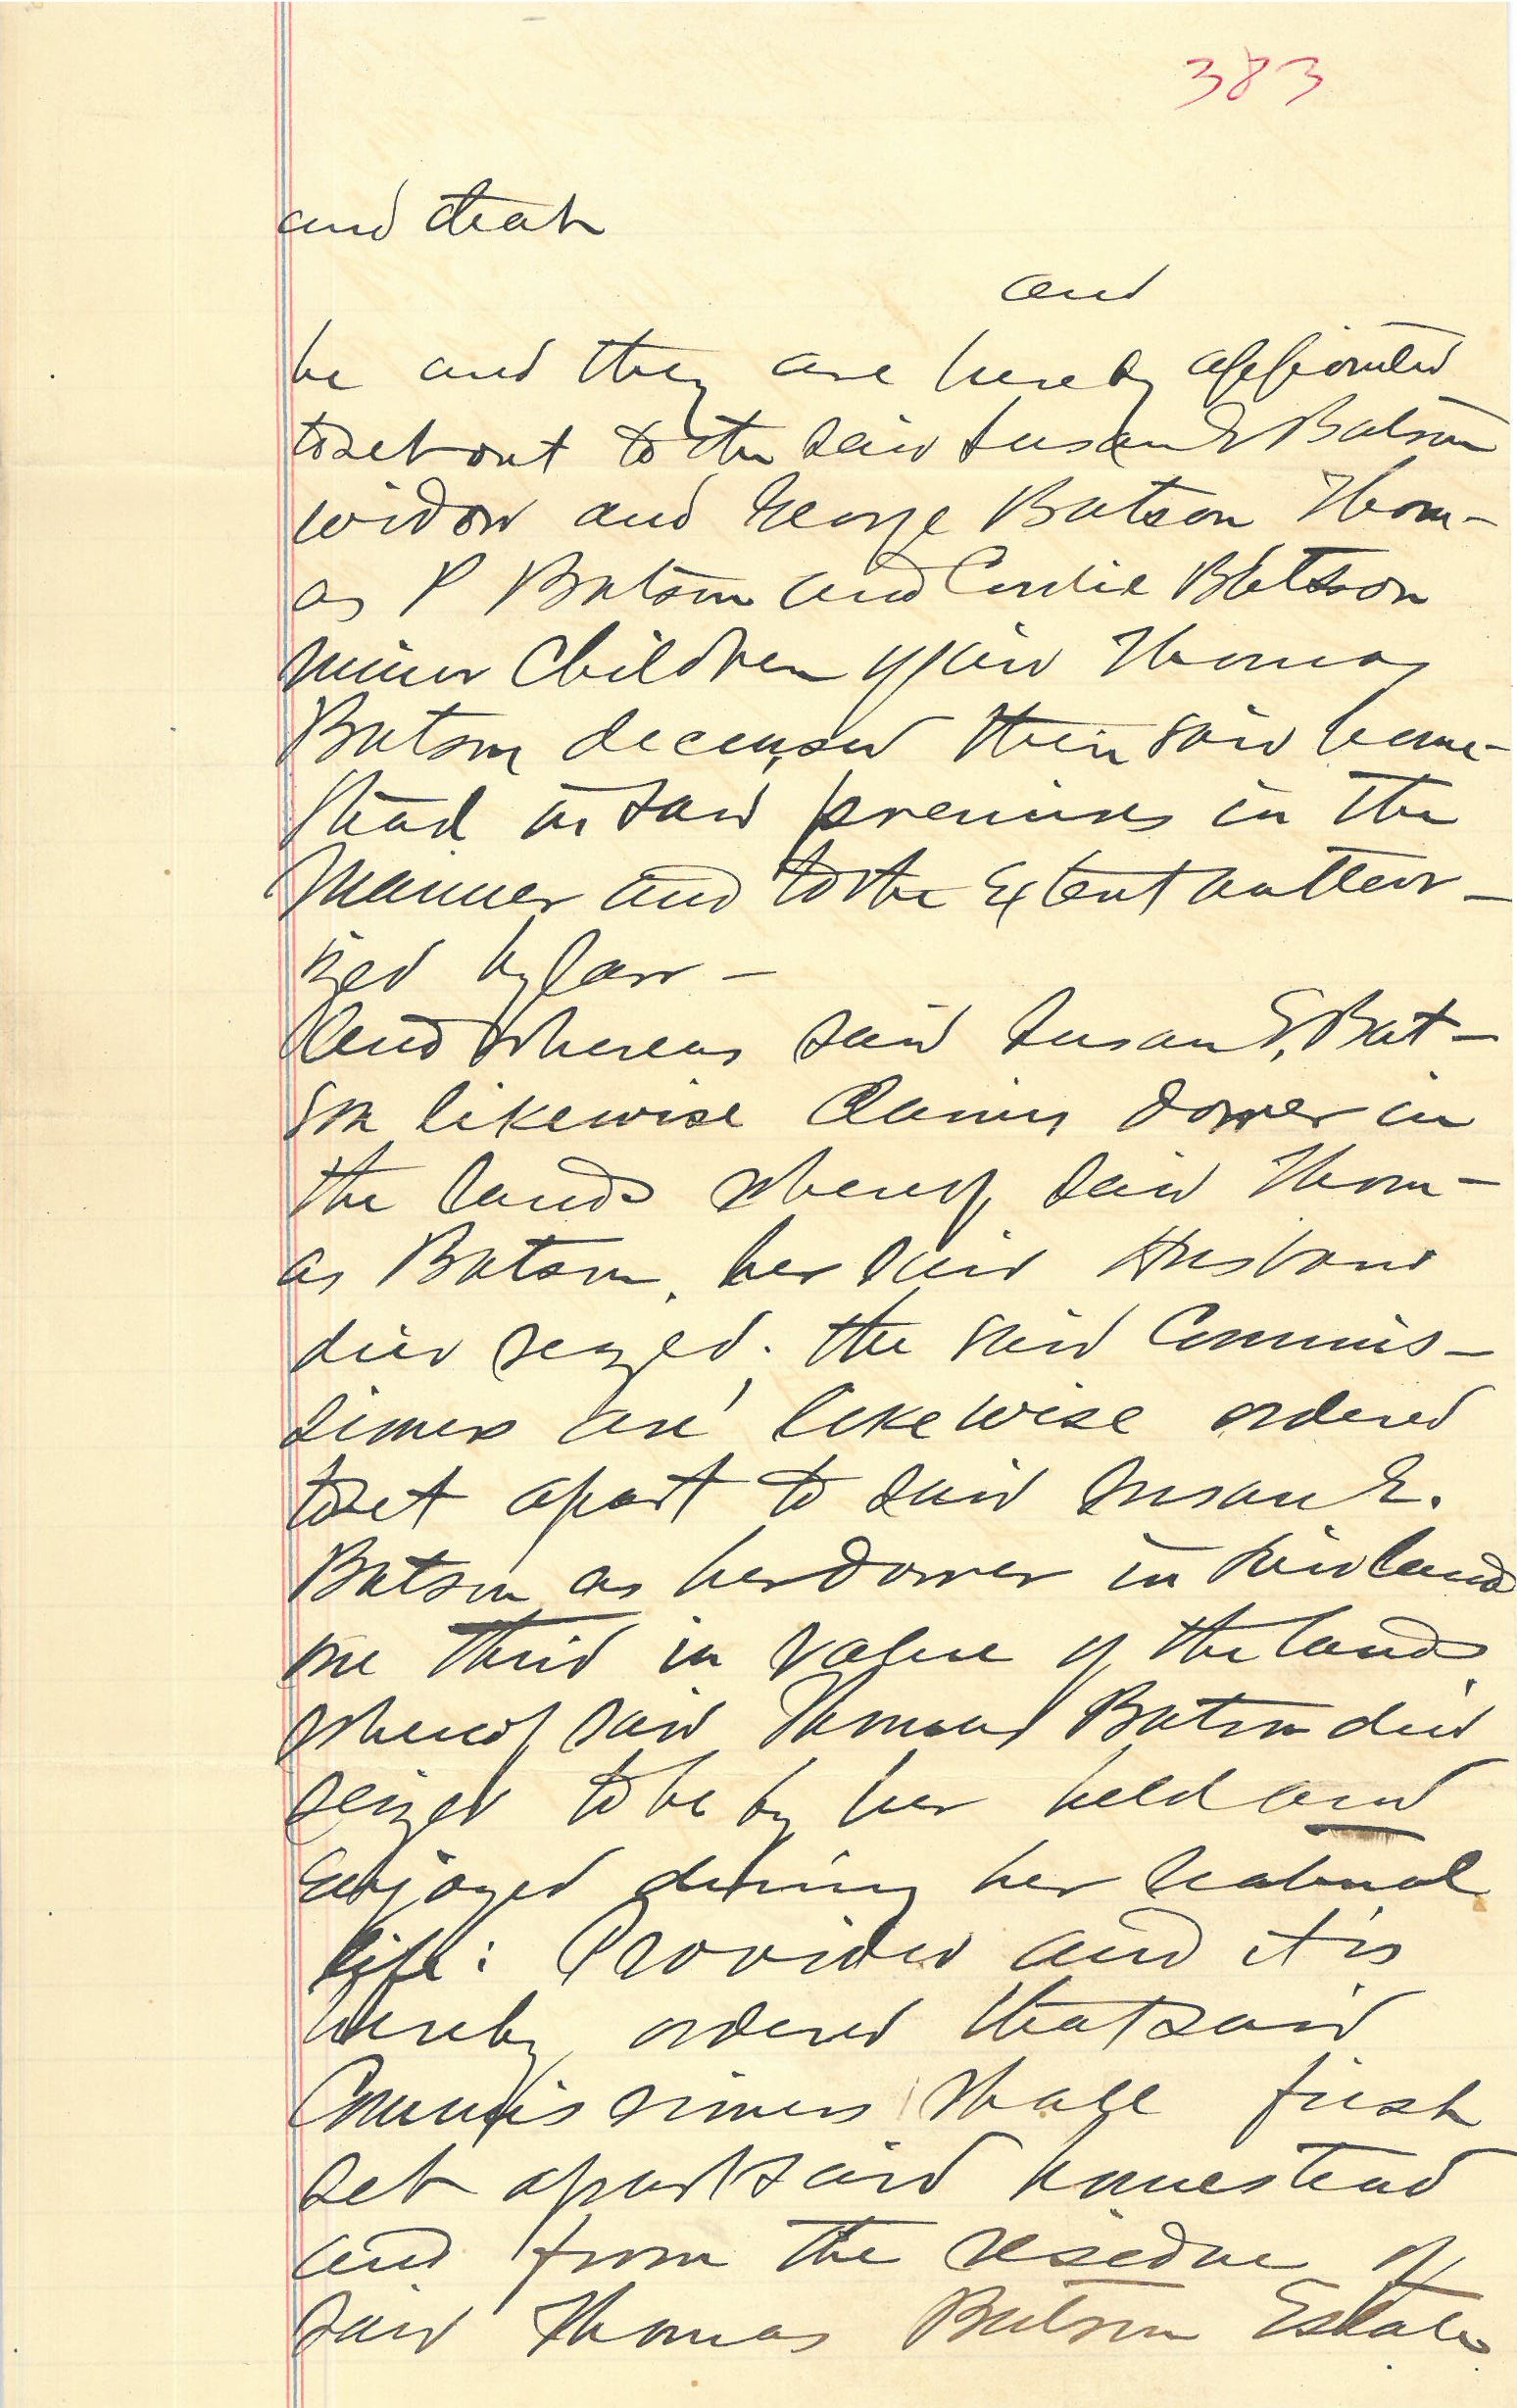 383
and that
and
be and they are hereby appointed
to set out to the said Susan E Batson
widow and George Batson Thom-
as P Batson and Cordie Batson
minor Children of said Thomas
Batson deceased their said home-
stead in said premises in the
Manner and to the Extent author-
ized by law -
And whereas said Susan E. Bat-
son likewise Claims dower in
the lands whereof said Thom-
as Batson, her said Husband
died seized. the said Commis-
sioners are likewise ordered
to set apart to said Susan E.
Batson as her dower in said lands
one third in value of the lands
whereof said Thomas Batson died
seized to be by her held and
enjoyed during her natural
life: Provided and it is
hereby ordered that said
Commissioners shall first
set apart said homestead
and from the residue of
said Thomas Batson Estate